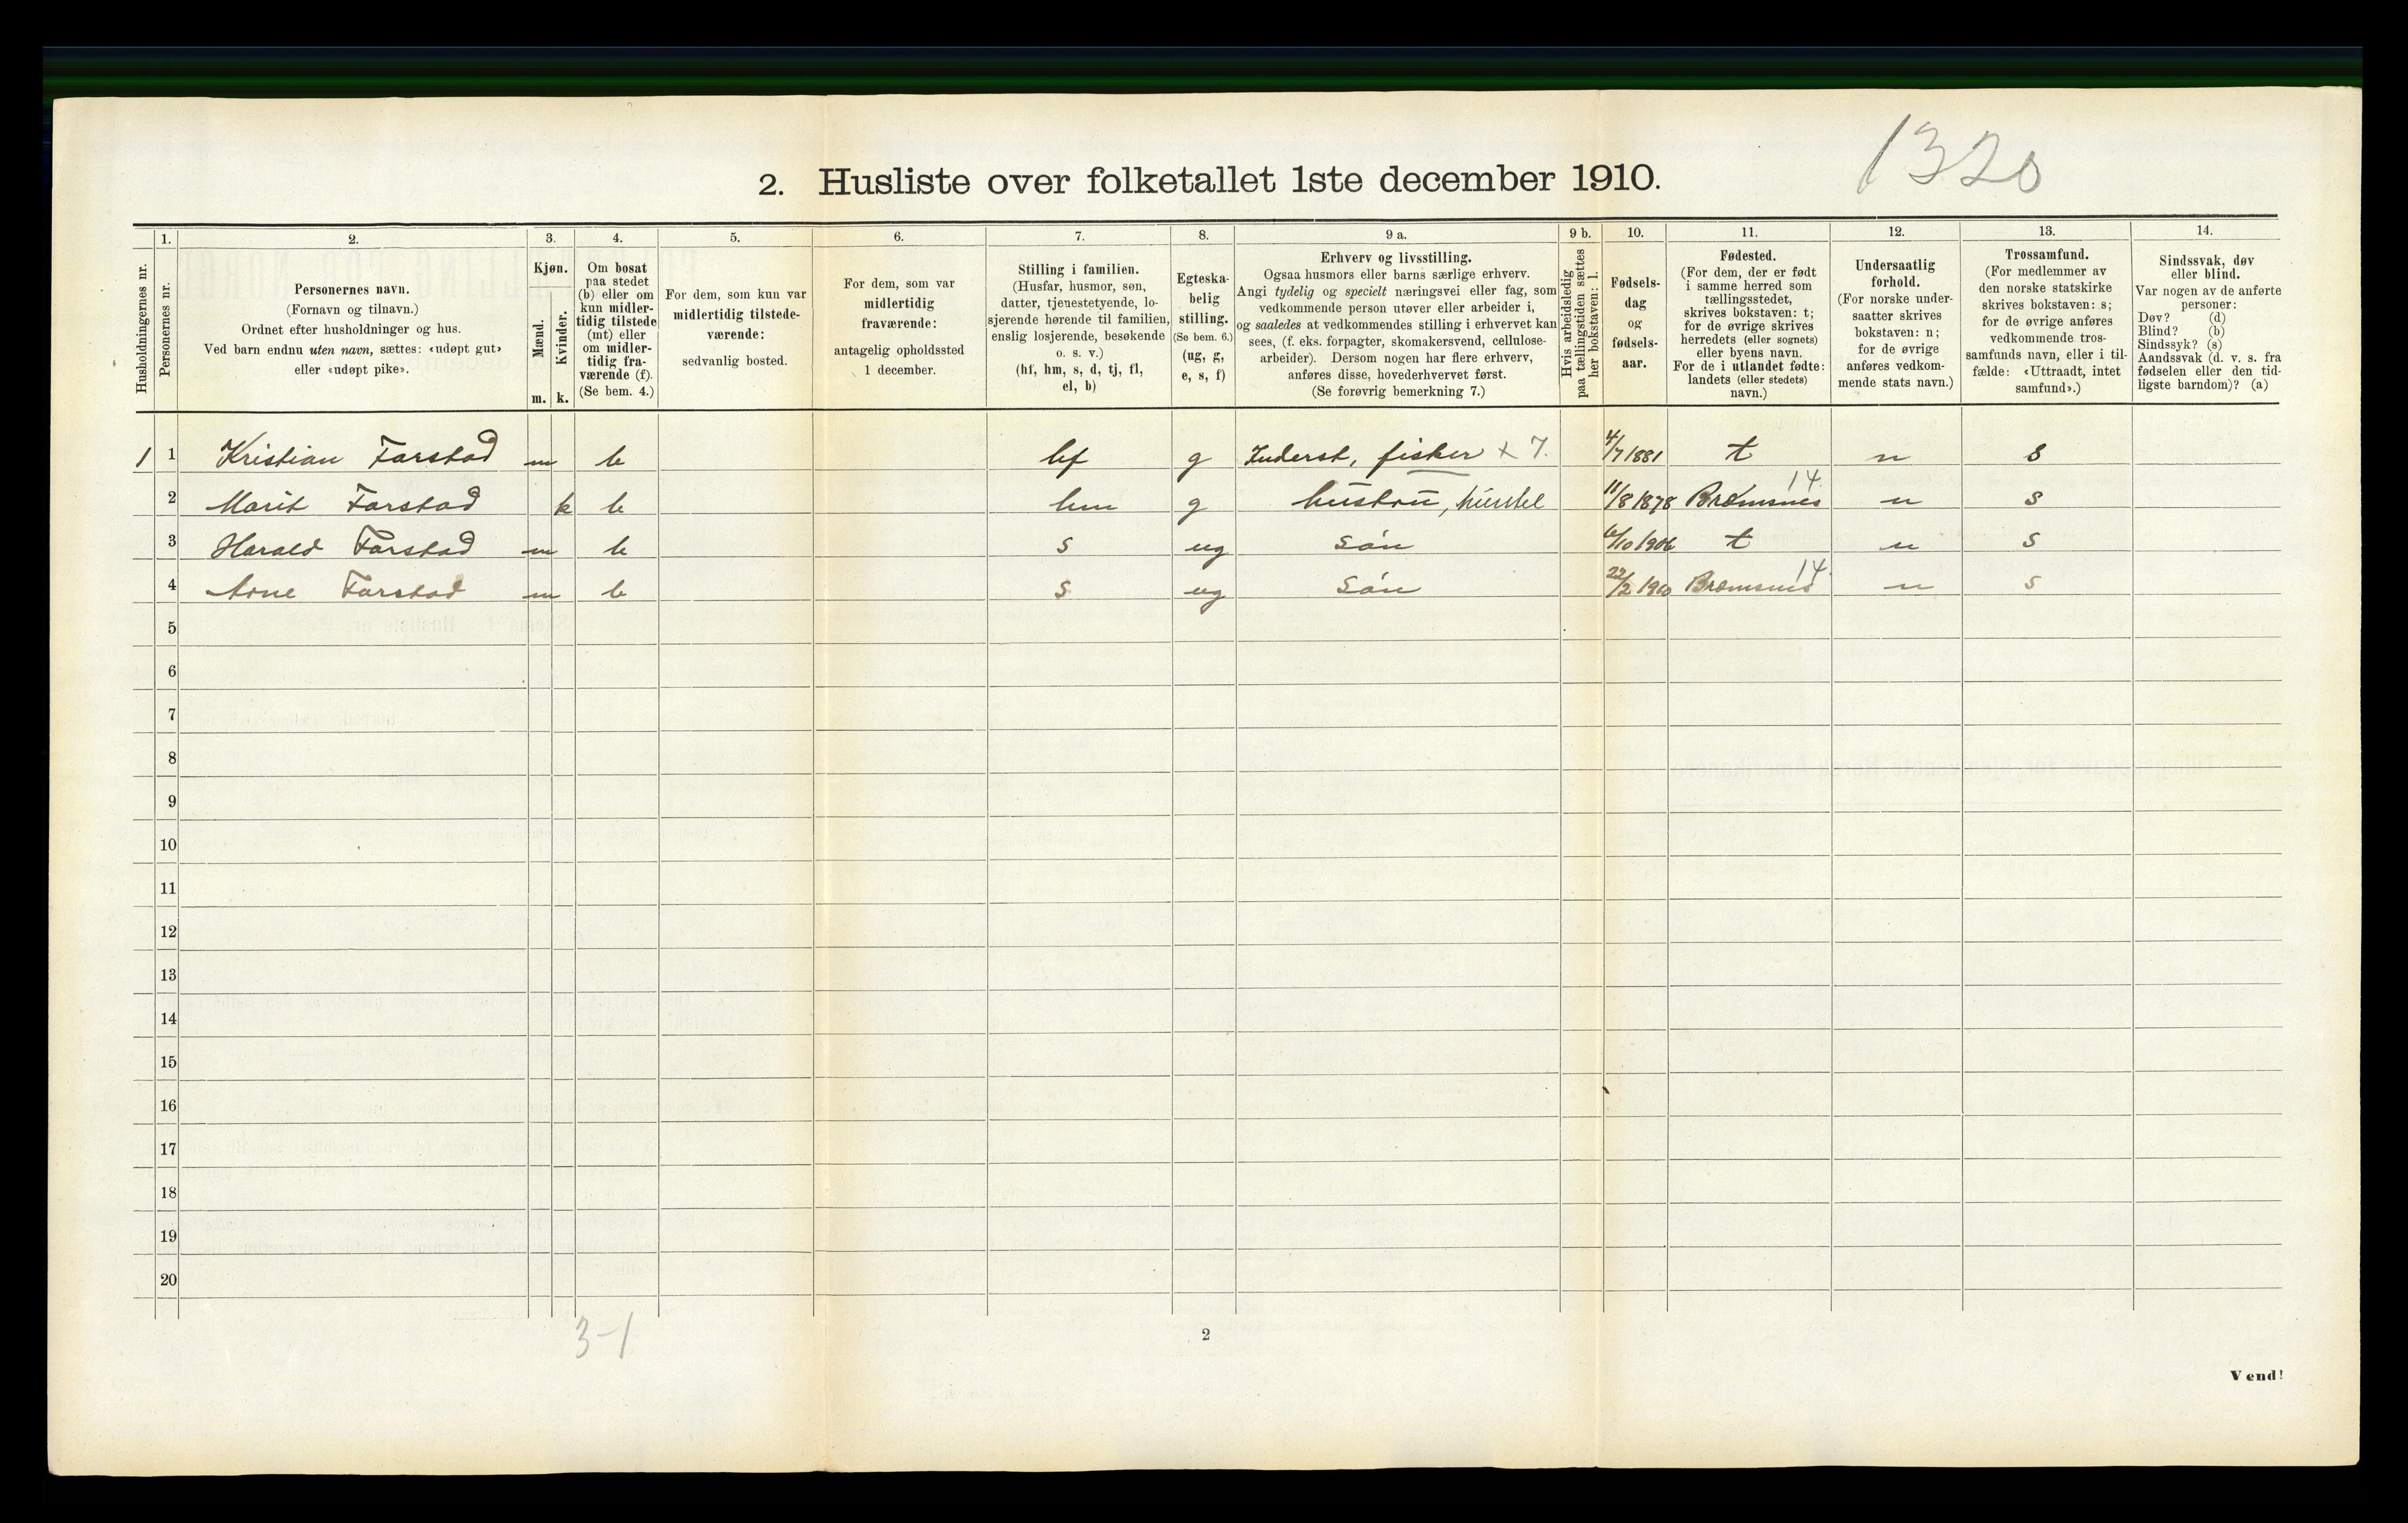 1320
2. Husliste over folketallet 1ste december 1910.
Husholdningernes nr.
1.
Personernes nr.
2.
Personernes navn.
(Fornavn og tilnavn.)
Ordnet efter husholdninger og hus.
Ved barn endnu uten navn, sættes: «udøpt gut»
eller «udøpt pike».
3.
Kjøn.
Mænd.
Kvinder.
m. k.
4.
Om bosat
paa stedet
(b) eller om
kun midler-
tidig tilstede
(mt) eller
om midler-
tidig fra-
værende (f).
(Se bem. 4.)
5.
For dem, som kun var
midlertidig tilstede-
værende:
sedvanlig bosted.
6.
For dem, som var
midlertidig
fraværende:
antagelig opholdssted
1 december.
7.
Stilling i familien.
(Husfar, husmor, søn,
datter, tjenestetyende, lo-
sjerende hørende til familien,
enslig losjerende, besøkende
o. s. v.)
(hf, hm, s, d, tj, fl,
el, b)
8.
Egteska-
belig
stilling.
(Se bem. 6.)
(ug, g,
e, s, f)
9 a.
Erhverv og livsstilling.
Ogsaa husmors eller barns særlige erhverv.
Angi tydelig og specielt næringsvei eller fag, som
vedkommende person utøver eller arbeider i,
og saaledes at vedkommendes stilling i erhvervet kan
sees, (f. eks. forpagter, skomakersvend, cellulose-
arbeider). Dersom nogen har flere erhverv,
anføres disse, hovederhvervet først.
(Se forøvrig bemerkning 7.)
9 b.
Hvis arbeidsledig
paa tællingstiden sættes
her bokstaven: l.
10.
Fødsels-
dag
og
fødsels-
aar.
11.
Fødested.
(For dem, der er født
i samme herred som
tællingsstedet,
skrives bokstaven: t;
for de øvrige skrives
herredets (eller sognets)
eller byens navn.
For de i utlandet fødte:
landets (eller stedets)
navn.)
12.
Undersaatlig
forhold.
(For norske under-
saatter skrives
bokstaven: n;
for de øvrige
anføres vedkom-
mende stats navn.)
13.
Trossamfund.
(For medlemmer av
den norske statskirke
skrives bokstaven: s;
for de øvrige anføres
vedkommende tros-
samfunds navn, eller i til-
fælde: «Uttraadt, intet
samfund».)
14.
Sindssvak, døv
eller blind.
Var nogen av de anførte
personer:
Døv? (d)
Blind? (b)
Sindssyk? (s)
Aandssvak (d. v. s. fra
fødselen eller den tid-
ligste barndom)? (a)
1 1 Kristian Farstad m b hf g Inderst, fisker x 7. 4/7 1881 t n s
2 Marit Farstad k b hm g hustru, husstel 11/8 1878 Bremsnes 14. n s
3 Harald Farstad m b s ug søn /10 1906 t n s
4 Arne Farstad m b s ug søn 22/2 1910 Bremsnes 14. n s
5
6
7
8
9
10
11
12
13
14
15
16
17
18
19
20
3-1
2
Vend!